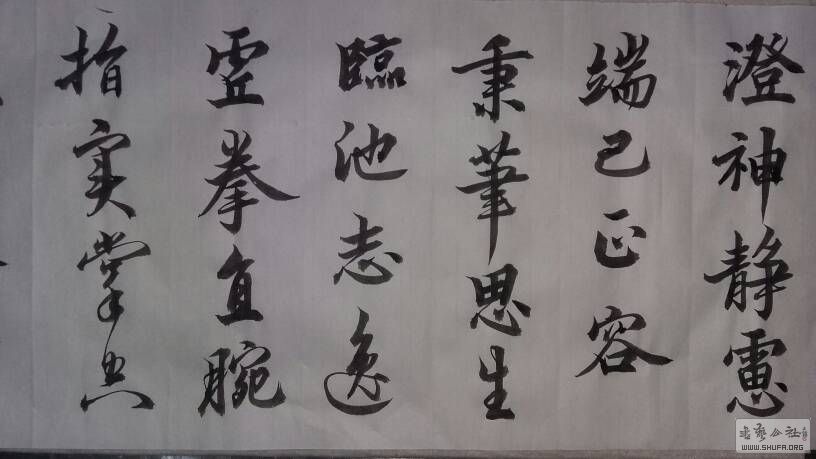 澄神静慮
端己正容
秉筆思生
臨池志逸
虚拳直腕
指实掌空
书艺公社
WWW.SHUFA.ORG